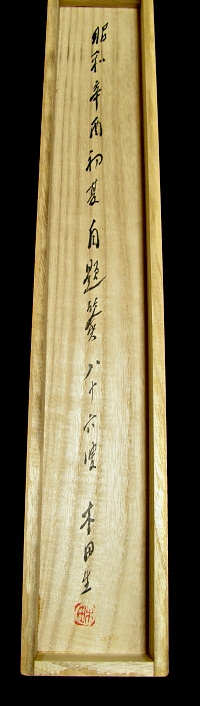 昭和辛酉初夏自題簽 八十六叟 田生